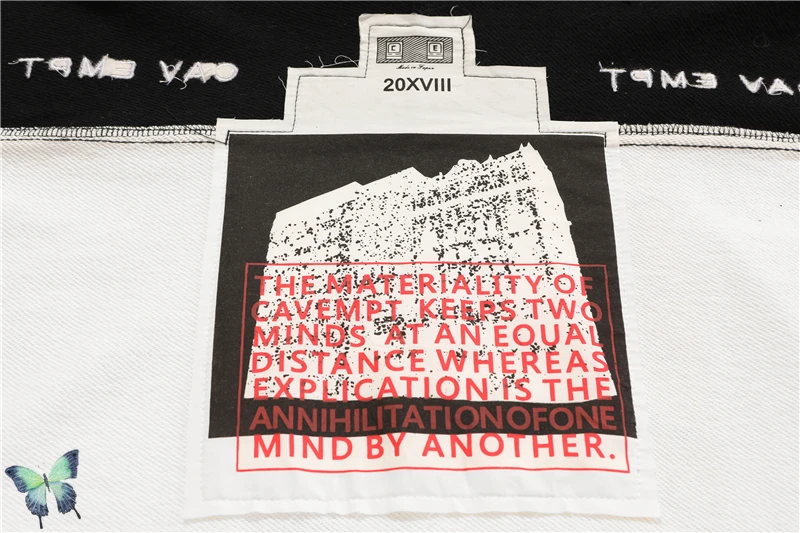 C E
Made in Japan
20XVIII
TPME VAC
TPME VAC
THE MATERIALITY OF
CAVEMPT KEEPS TWO
MINDS AT AN EQUAL
DISTANCE WHEREAS
EXPLICATION IS THE
ANNIHILITATION OF ONE
MIND BY ANOTHER.